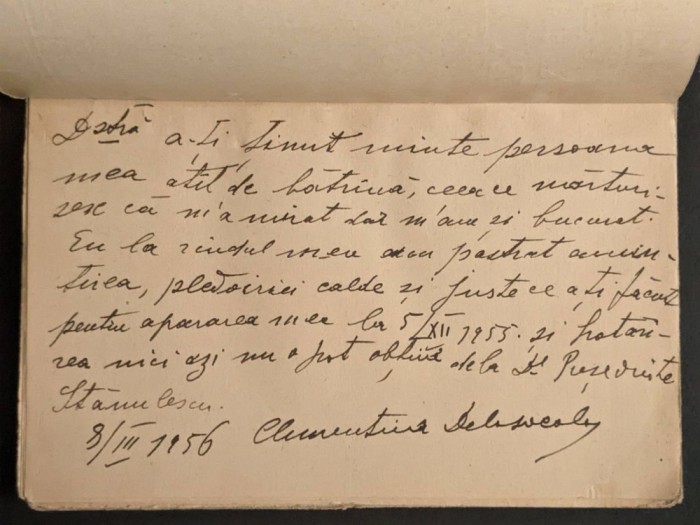 Dstră a-ți ținut minte persoana
mea atît de bătrînă, ceeace mărturi-
sesc că m'a mirat dar m'am și bucurat.
Eu la rîndul meu am păstrat amin-
tirea, pledoiriei calde și juste ce ați făcut
pentru apararea mea la 5/XII 1955. și hotăr-
rea nici azi nu o pot obține dela Dl Președinte
Stănulescu.
8/III 1956 Clementina